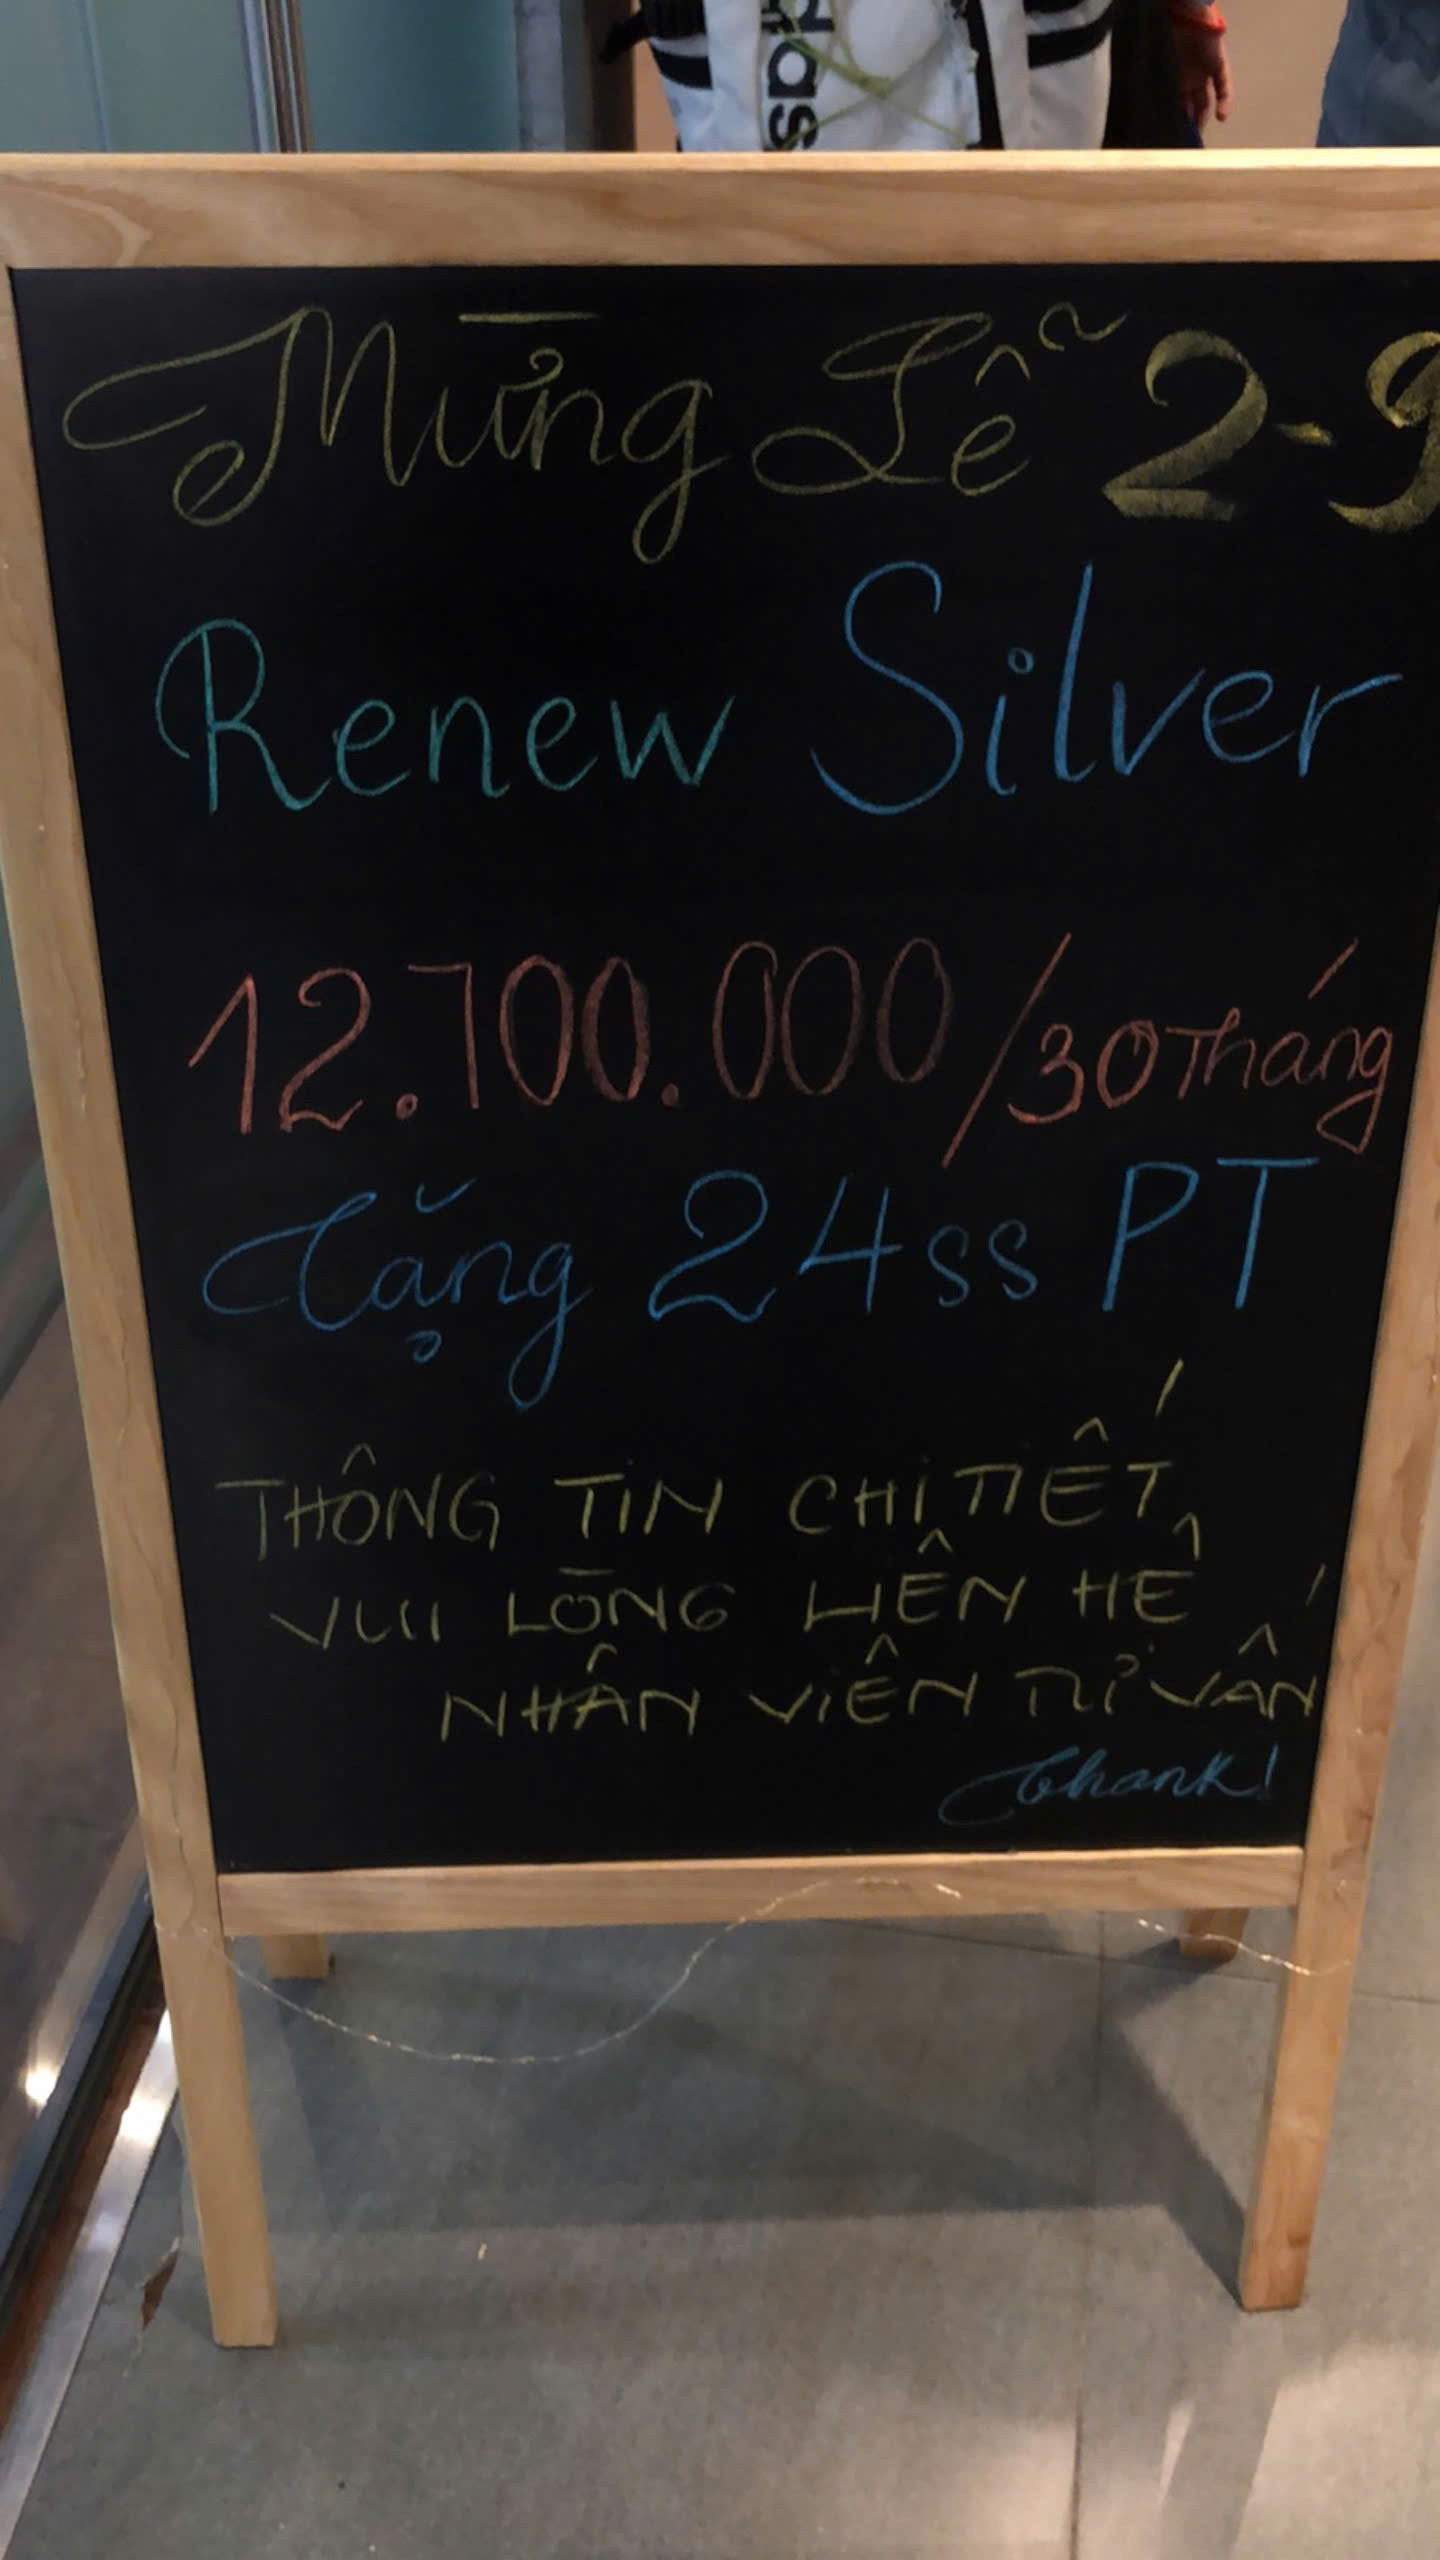 das
Mừng Lễ 2-9
Renew Silver
12.700.000/30 Tháng
Tặng 24ss PT
THÔNG TIN CHI TIẾT
VUI LÒNG LIÊN HÊ
NHÂN VIÊN TƯ VẤN
Thank!